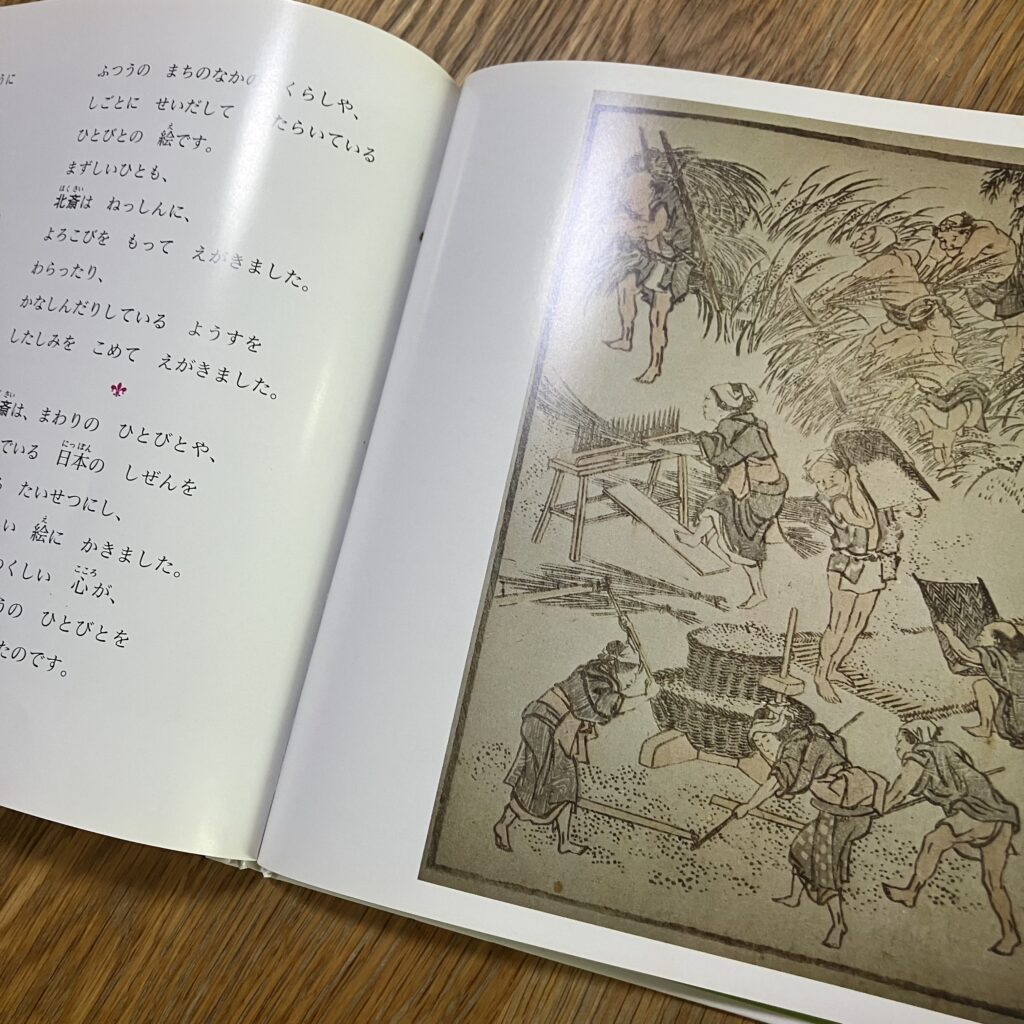 うに
ふつうの まちのなかの くらしや、
しごとに せいだして たらいている
え
ひとびとの 絵です。
まずしいひとも、
ほくさい
北斎は ねっしんに、
よろこびを もって えがきました。
わらったり、
かなしんだりしている ようすを
したしみを こめて えがきました。
さい
斎は、まわりの ひとびとや、
にっぽん
でいる 日本の しぜんを
たいせつにし、
え
い 絵に かきました。
こころ
くしい 心が、
うの ひとびとを
たのです。